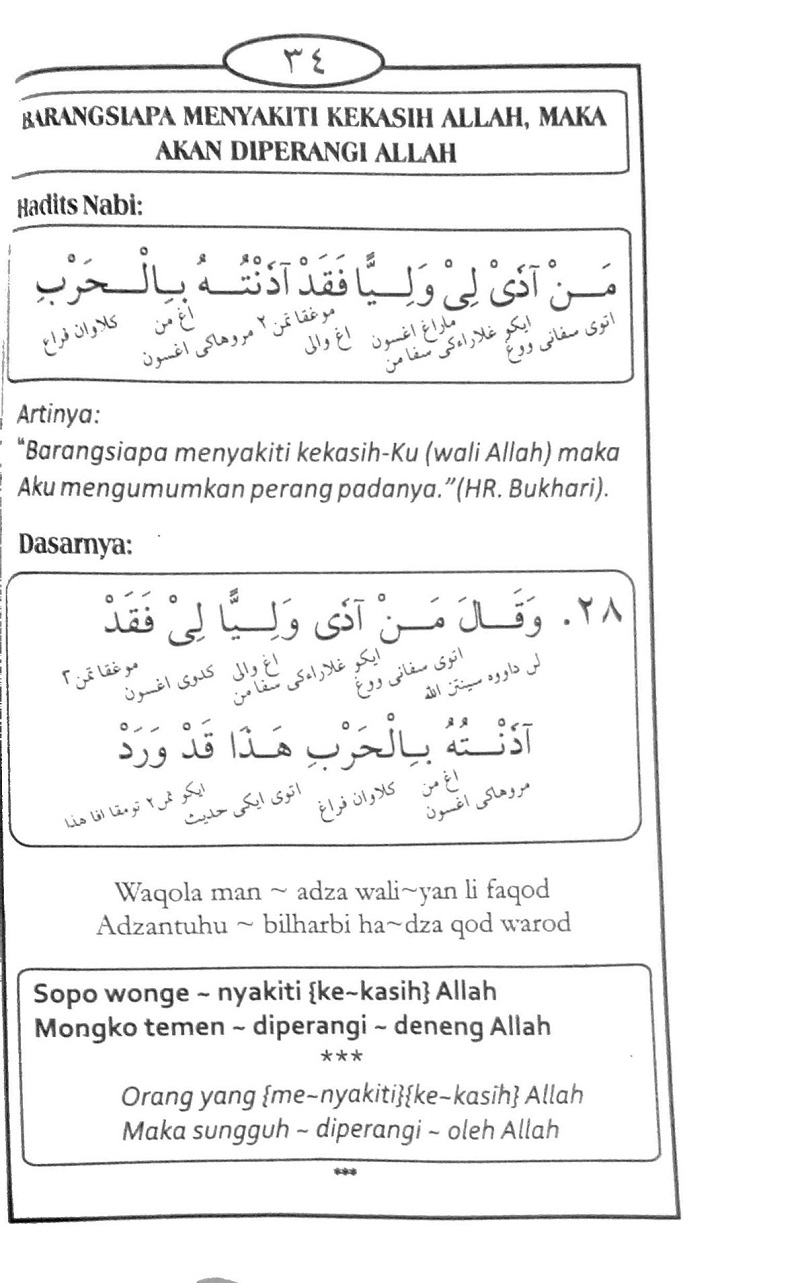 ٣٤
BARANGSIAPA MENYAKITI KEKASIH ALLAH, MAKA
AKAN DIPERANGI ALLAH
Hadits Nabi:
مَــنْ آذَىْ لِىْ وَلِــيًّا فَقَدْ آذَنْتُــهُ بِالْــحَرْبِ
اتوى سفانى ووغ
ايكو غلاراءكى سفا من
ماراغ اغسون
اغ والى
موغقا تمن ٢
مروهاكى اغسون
اغ من
كلاوان فراغ
Artinya:
“Barangsiapa menyakiti kekasih-Ku (wali Allah) maka
Aku mengumumkan perang padanya.”(HR. Bukhari).
Dasarnya:
٢٨. وَقَــالَ مَــنْ آذَى وَلِــيًّا لِىْ فَقَدْ
لن داووه سينتن الله
اتوى سفانى ووغ
ايكو غلاراءكى سفا من
اغ والى
كدوى اغسون
موغقا تمن ٢
آذَنْــتُهُ بِالْحَرْبِ هَــذَا قَدْ وَرَدْ
مروهاكى اغسون
اغ من
كلاوان فراغ
اتوى ايكى حديث
ايكو تمن ٢ تومقا افا هذا
Waqola man ~ adza wali~yan li faqod
Adzantuhu ~ bilharbi ha~dza qod warod
Sopo wonge ~ nyakiti {ke~kasih} Allah
Mongko temen ~ diperangi ~ deneng Allah
***
Orang yang {me~nyakiti}{ke~kasih} Allah
Maka sungguh ~ diperangi ~ oleh Allah
***